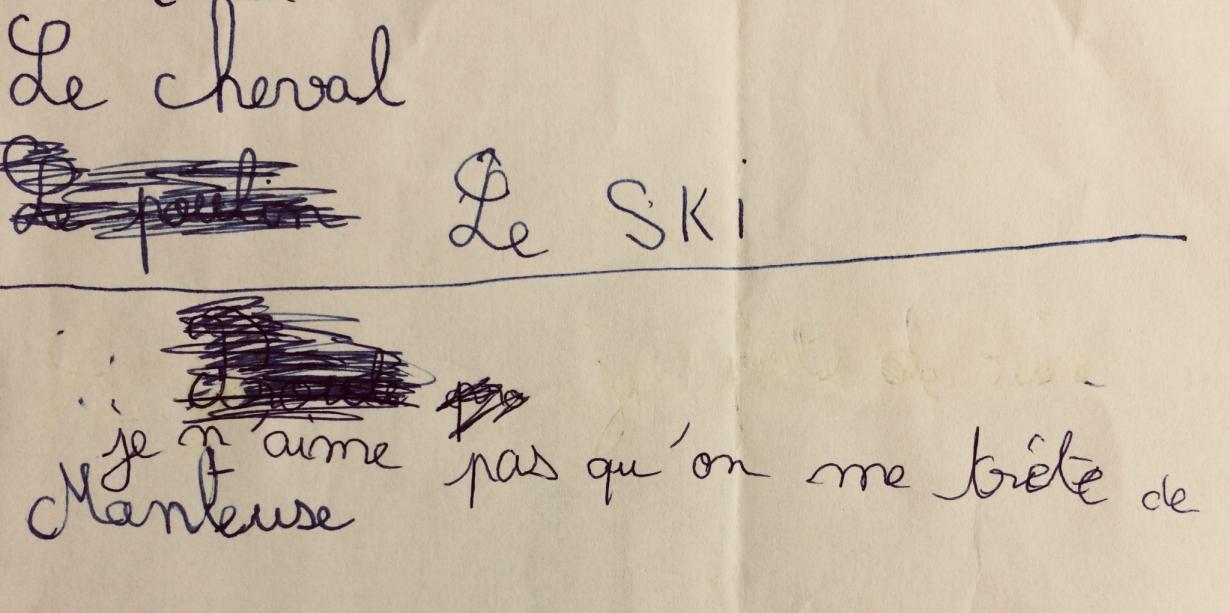 Le cheval
Le poulin Le SKi
je n'aime pas qu'on me trète de
Manteuse